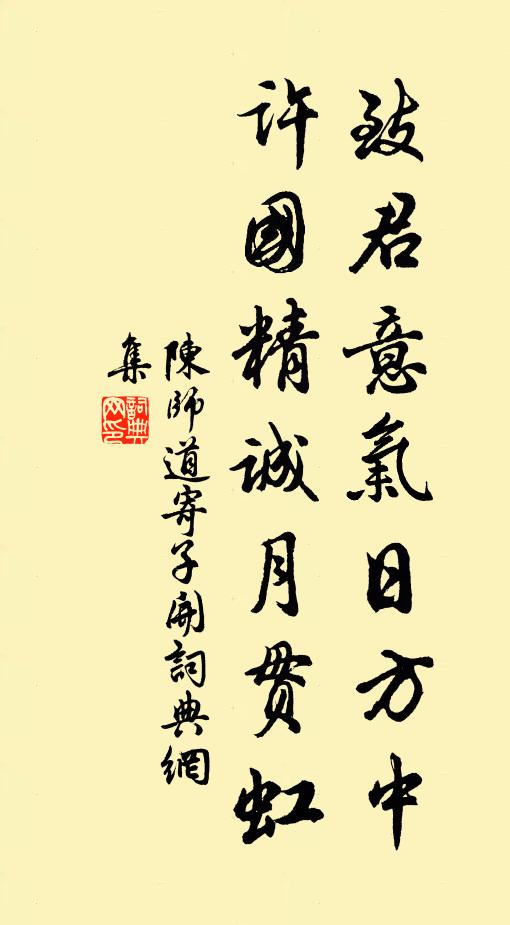 致君意氣日方中
許國精誠月貫虹
陳師道寄子開詞典網
集
詞典
网印